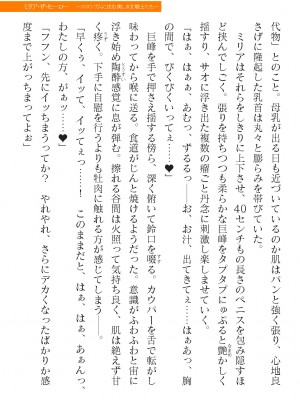 ミリア・ザ・ヒーロー
代物」とのこと。母乳が出る日も近づいているのか肌はパンと強く張り、心地良
さげに隆起した乳首は丸々と膨らみを帯びていた。
ミリアはそれらをしきりに上下させ、40センチもの長さのペニスを包み隠すほ
ど挟んでしごく。張りを持ちつつも柔らかな巨峰をタプタプにゅぷると艶かしく
揺すり、サオに浮き出た複数の瘤ごと丹念に刺激し楽しませていく。
「はぁ、はぁぁ、あむっ、ずるるっ――お、お汁、出てきてぇっ……はぁあっ、胸
の間で、びくびくいってぇっ…❤」
巨峰を手で押さえ揺する傍ら、深く俯いて鈴口を啜る。カウパーを舌で転がし
味わってから喉に送る。食道がじんと焼けるようだった。意識がふわふわと宙に
浮き始め陶酔感覚に息が弾む。擦れる谷間は火照って気持ち良く、肌は絶えず甘
く疼く。下手に自慰を行うよりも牡肉に触れる方が感じてしまう――。
「早くぅ、イって、イッてぇっ……！　このままだと、はぁ、はぁ、あぁんっ、
わたしの方、がぁッ……❤」
「フフン、先にイッちまうってか？　やれやれ、さらにデカくなったばかりか感